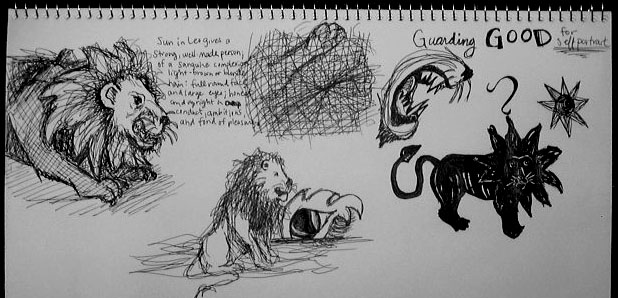 Sun in Leo gives a
strong, well made person,
of a sanguine
light-brown or
hair: full round
and large eyes;
and upright in
ambitious
and fond of pleasure
Guarding GOOD
for
self portrait